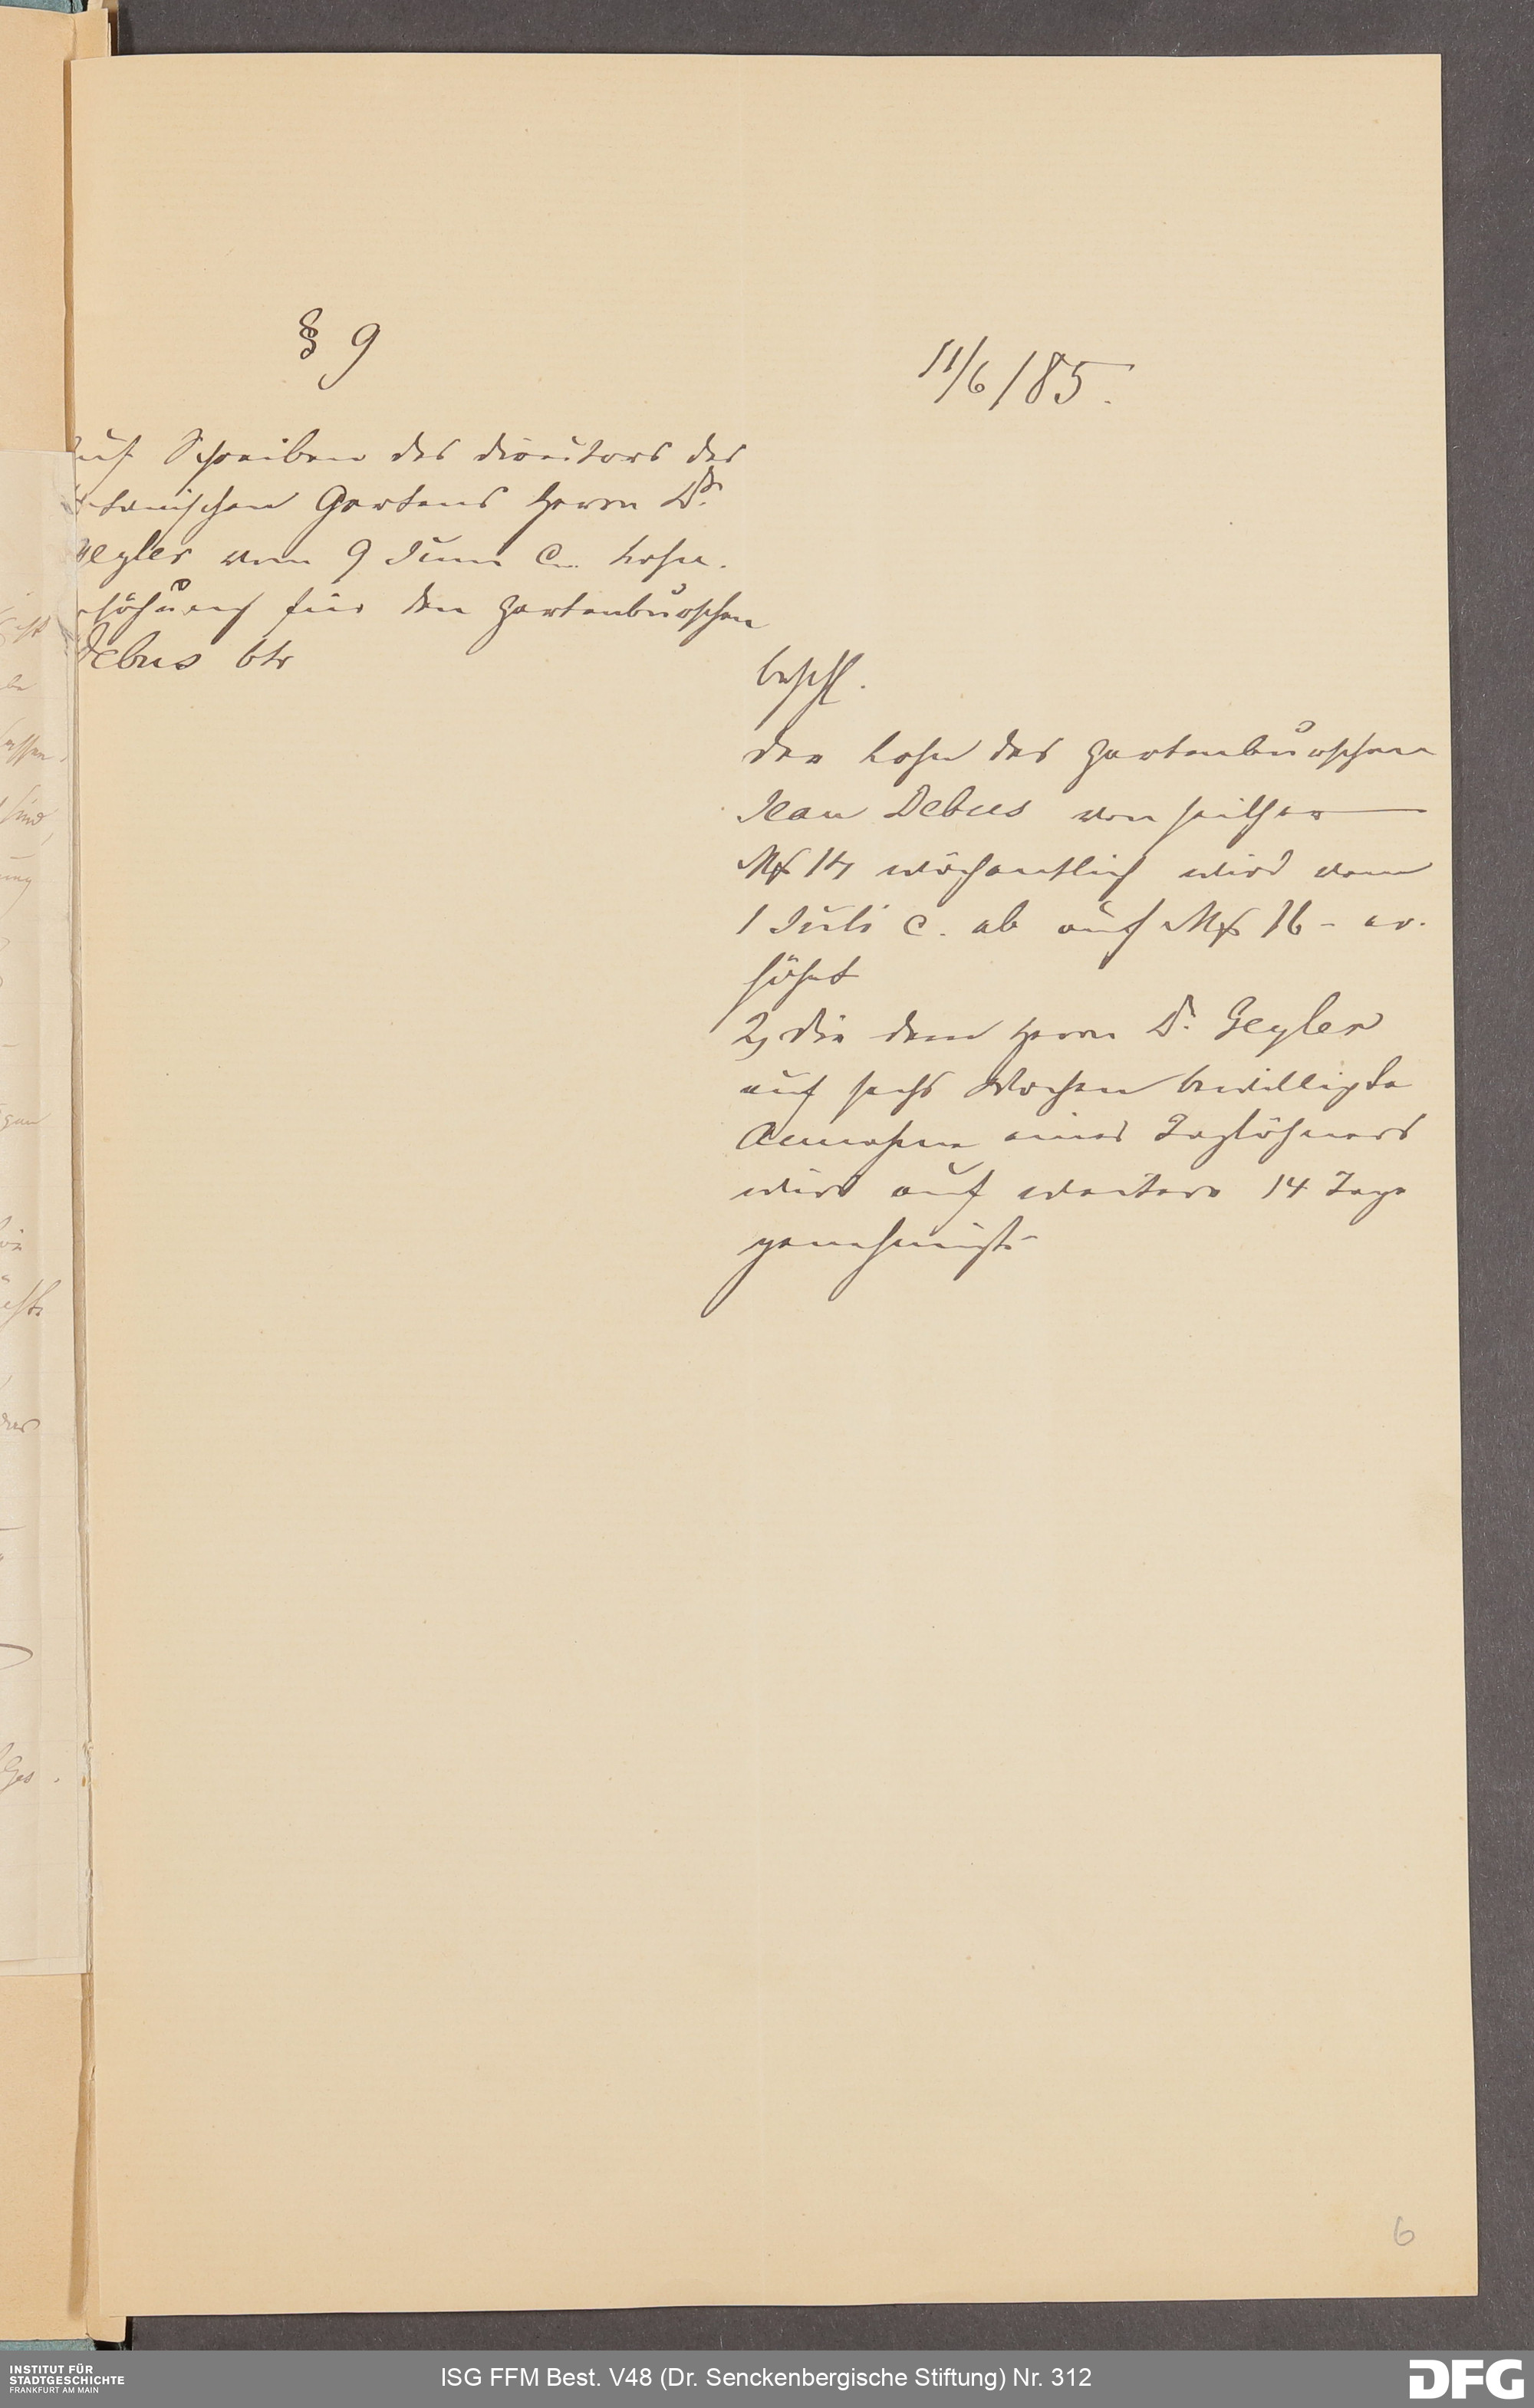 § 9
11/6/85.
auf Schreiben des Directors des
botanischen Gartens Herrn Dr.
Geyler vom 9 Juni c. Lohn-
erhöhung für den Gartenburschen
Debus btr
beschl.
der Lohn des Gartenburschen
Jean Debus von seither
Mk 14 wöchentlich wird vom
1 Juli c. ab auf Mk 16 - er-
höht
2, die dem Herrn Dr. Geyler
auf sechs Wochen bewilligte
Annahme eines Taglöhners
wird auf weitere 14 Tage
genehmigt
6
INSTITUT FÜR
STADTGESCHICHTE
FRANKFURT AM MAIN
ISG FFM Best. V48 (Dr. Senckenbergische Stiftung) Nr. 312
DFG